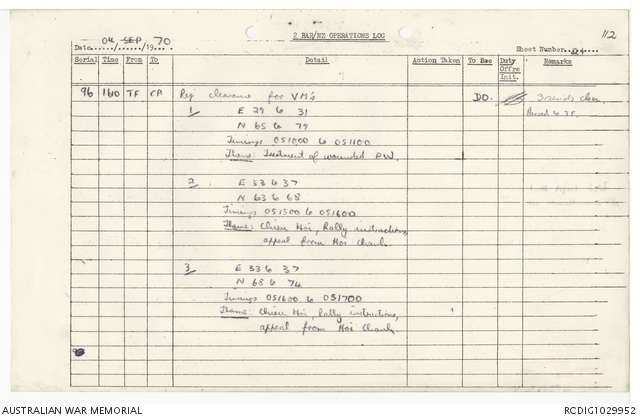 112
2 RAR/NZ OPERATIONS LOG
Date 04 SEP 1970
Sheet Number
Serial Time From To Detail Action Taken To See Duty Offrs Init. Remarks
96 1610 TF CP Req clearance for VM's DO. 3rounds clear
1 E 29 to 31 Passed to TF.
N 65 to 79
Timings 051000 to 051100
Theme: Treatment of wounded PW.
2 E 33 to 37
N 63 to 68
Timings 051500 to 051600
Theme: Chieu Hoi, Rally instructions
appeal from Hoi Chanh
3 E 33 to 37
N 68 to 74
Timings 051600 to 051700
Theme: Chieu Hoi, Rally instructions,
appeal from Hoi Chanh.
AUSTRALIAN WAR MEMORIAL
RCDIG1029952